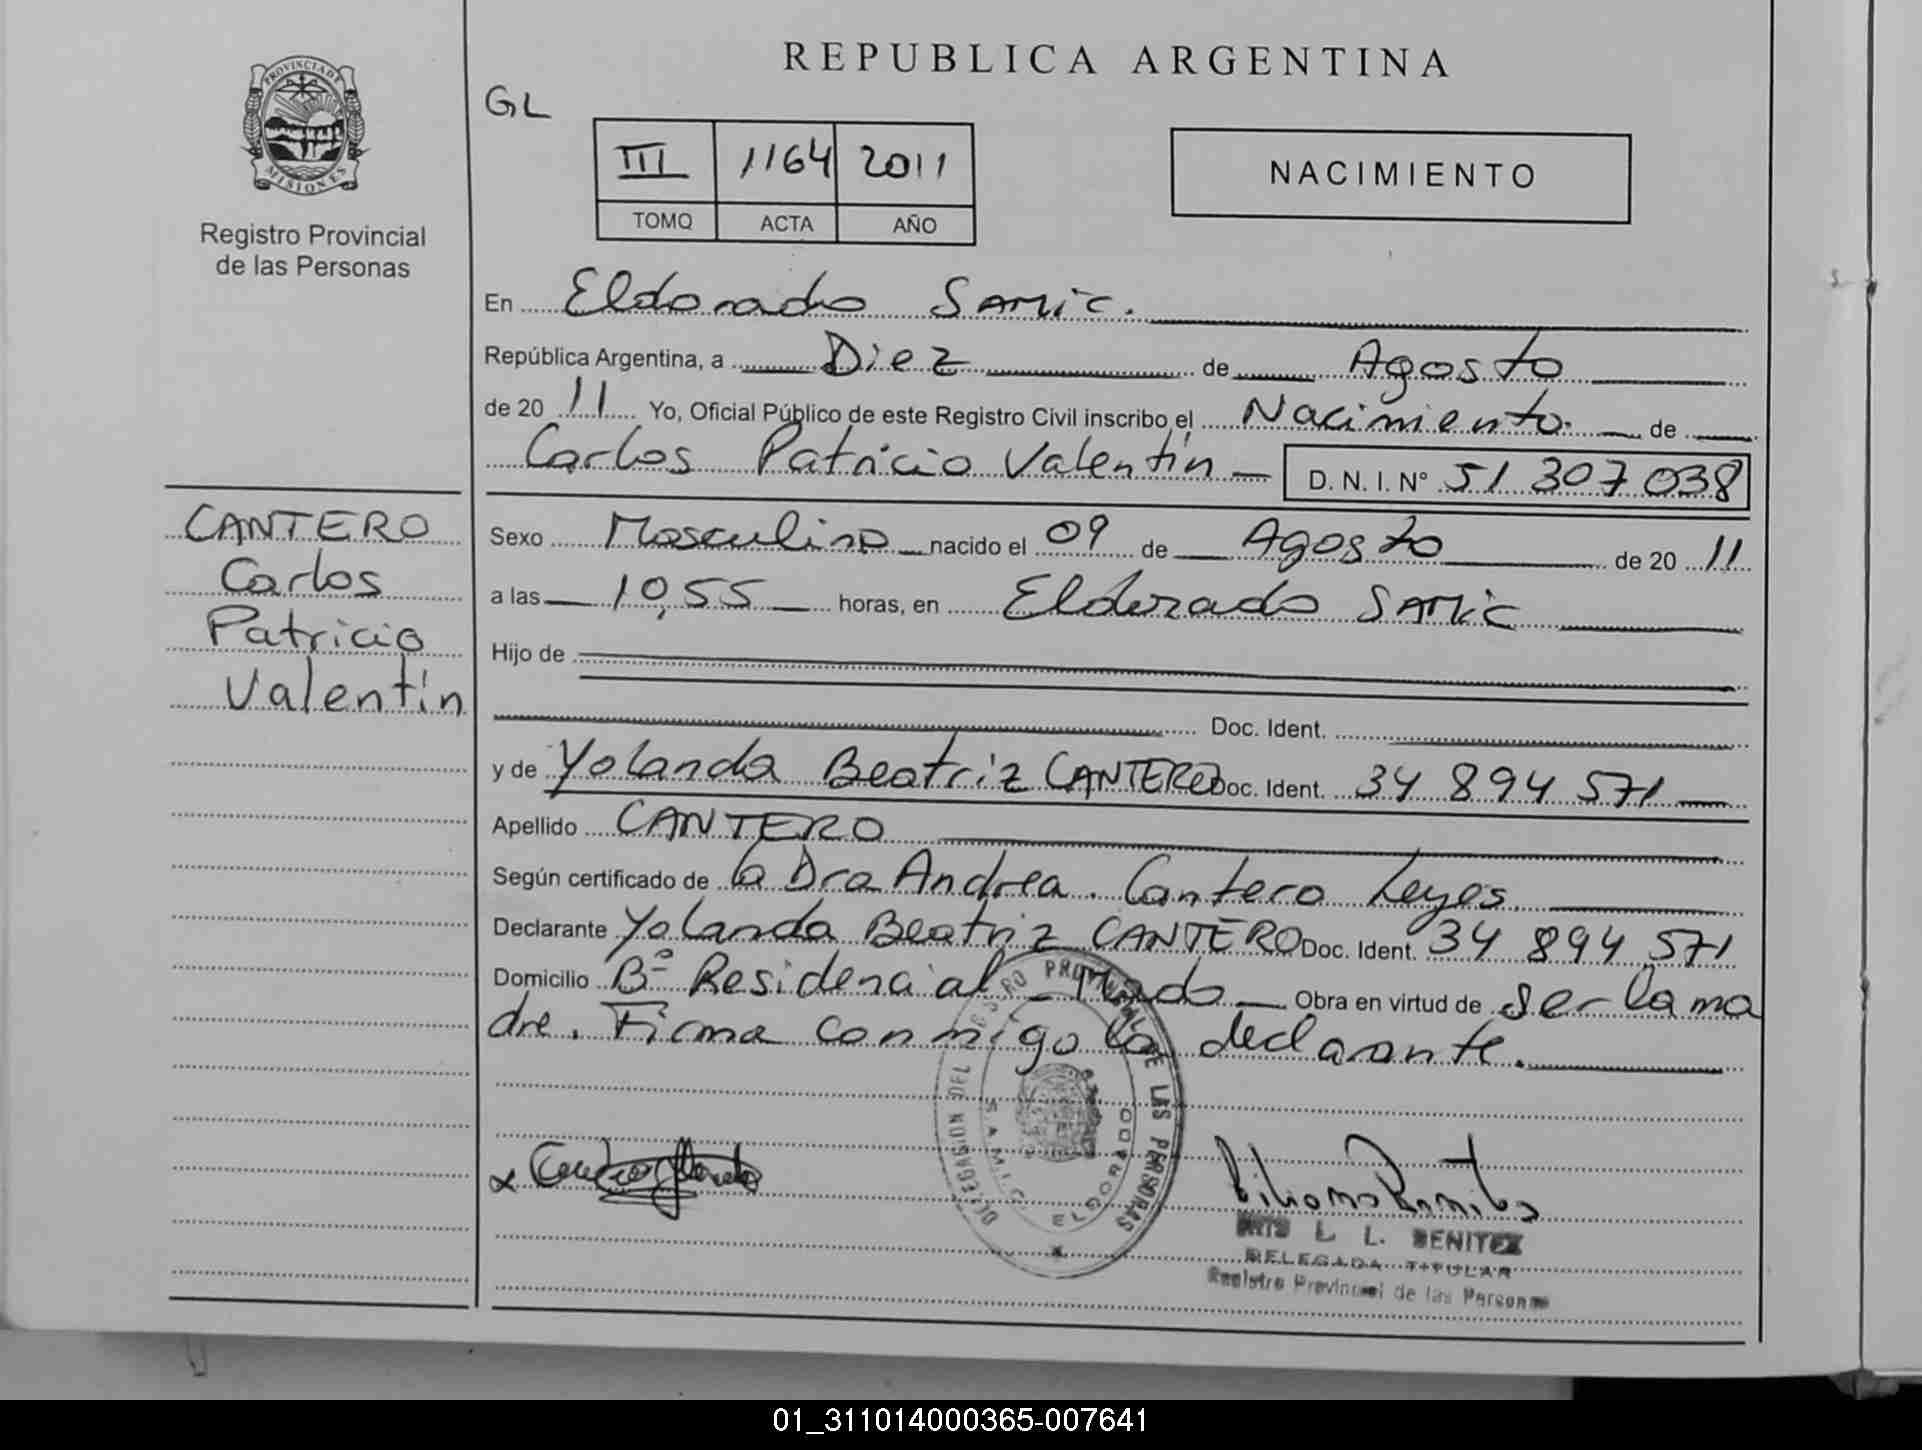 REPUBLICA ARGENTINA
PROVINCIA DE
MISIONES
Registro Provincial
de las Personas
GL
III 1164 2011
TOMO ACTA AÑO
NACIMIENTO
En Eldorado SAMIC.
República Argentina, a Diez de Agosto
de 20 11 Yo, Oficial Público de este Registro Civil inscribo el Nacimiento de
Carlos Patricio Valentín D. N. I. N° 51 307 038
CANTERO
Carlos
Patricio
Valentín
Sexo Masculino nacido el 09 de Agosto de 20 11
a las 10,55 horas, en Eldorado SAMIC
Hijo de
Doc. Ident.
y de Yolanda Beatriz CANTERO Doc. Ident. 34 894 571
Apellido CANTERO
Según certificado de la Dra Andrea. Cantero Leyes.
Declarante Yolanda Beatriz CANTERO Doc. Ident. 34 894 571
Domicilio Bº Residencial Obra en virtud de ser la ma
dre. Firma conmigo la declarante.
DELEGACION DEL REGISTRO PROVINCIAL DE LAS PERSONAS
SAMIC ELDORADO
L. L. BENITEZ
DELEGADA TITULAR
Registro Provincial de las Personas
01_311014000365-007641